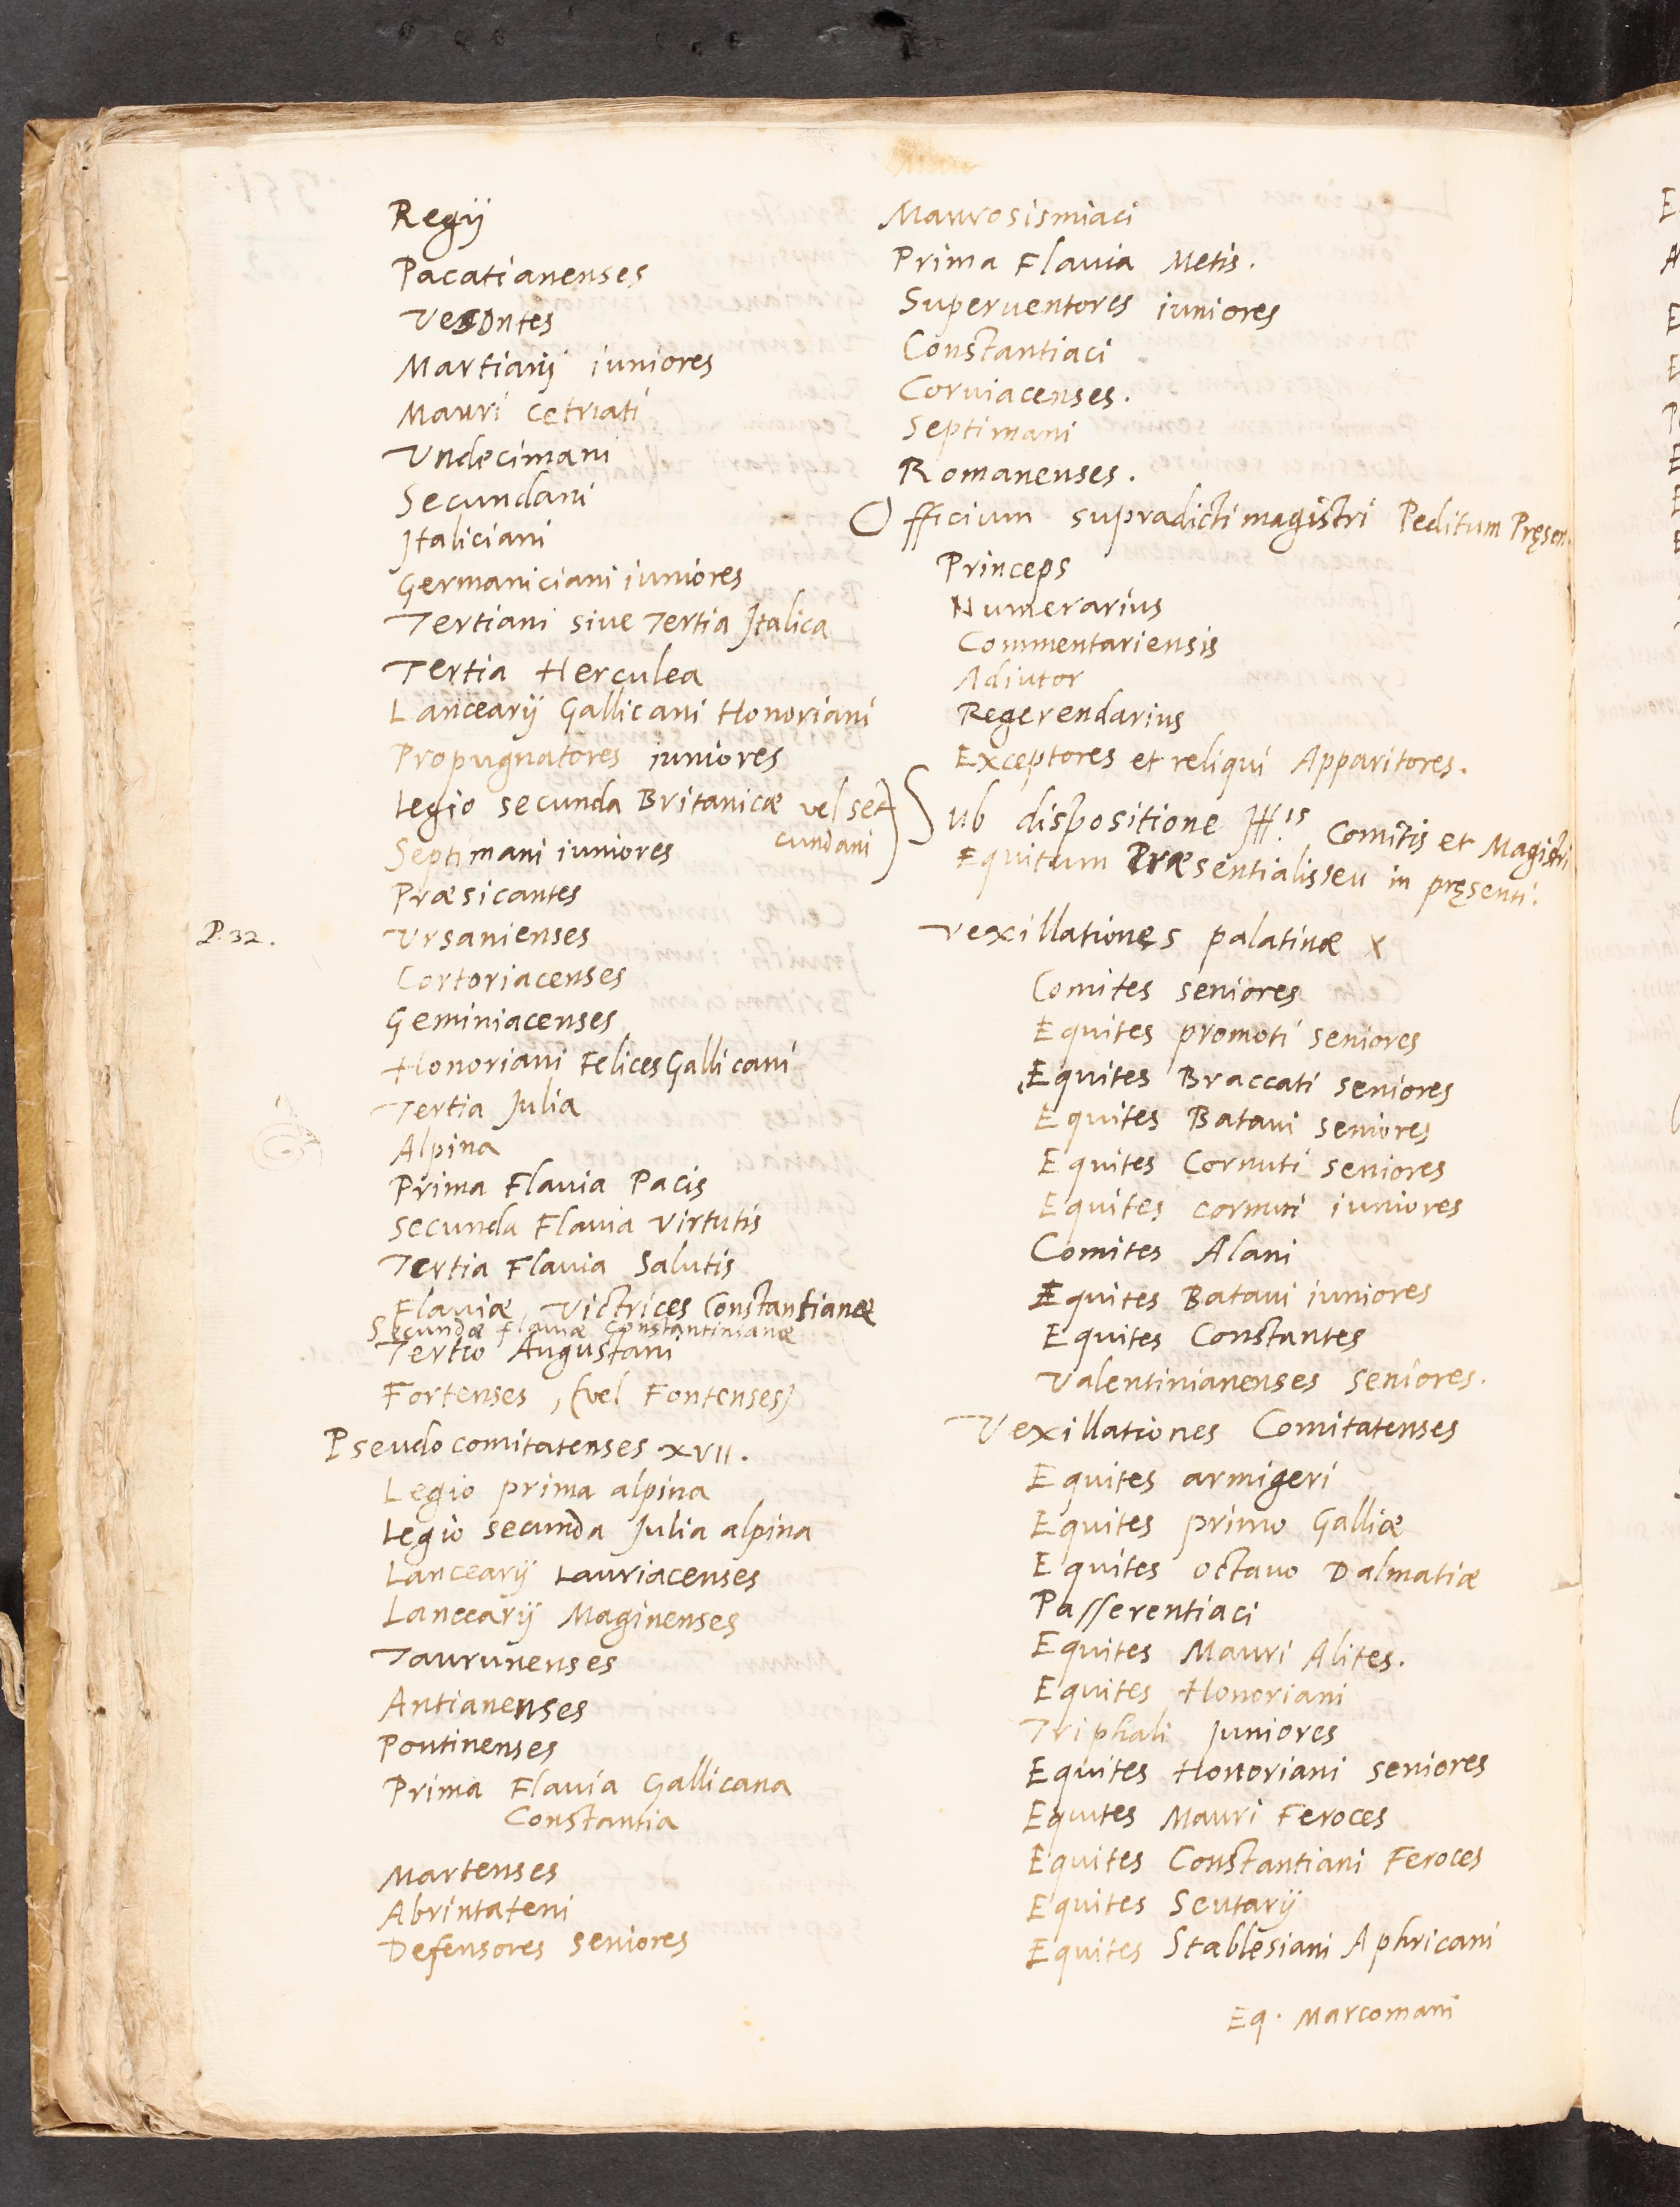 Regij
Pacatianenses
Vesontes
Martiarij iuniores
Mauri Cetriati
Undecimani
Secundani
Italiciani
Germaniciani iuniores
Tertiani siue Tertia Italica
Tertia Herculea
Lancearij Gallicani Honoriani
Propugnatores iuniores
Legio secunda Britanicæ vel se+
cundani
Septimani iuniores
Præsicantes
P. 32.
Ursanienses
Cortoriacenses
Geminiacenses
Honoriani Felices Gallicani
Tertia Julia
Alpina
Prima Flauia Pacis
Secunda Flauia Virtutis
Tertia Flauia Salutis
Flauiæ Victrices Constantianæ
Secundæ flauiæ Constantinianæ
Tertio Augustani
Fortenses, (vel Fontenses)
Pseudocomitatenses XVII.
Legio prima alpina
Legio secunda Julia alpina
Lancearij Lauriacenses
Lancearij Maginenses
Taurunenses
Antianenses
Pontinenses
Prima Flauia Gallicana
Constantia
Martenses
Abrintateni
Defensores seniores
Maurosismiaci
Prima Flauia Metis.
Superuentores iuniores
Constantiaci
Coruiacenses.
Septimani
Romanenses.
Officium supradicti magistri Peditum Pręsen.
Princeps
Numerarius
Commentariensis
Adiutor
Regerendarius
Exceptores et reliqui Apparitores.
Sub dispositione Ill.is Comitis et Magistri
Equitum Præsentialis seu in pręsenti.
Vexillationes palatinæ X
Comites seniores
Equites promoti seniores
Equites Braccati seniores
Equites Bataui seniores
Equites Cornuti seniores
Equites cornuti iuniores
Comites Alani
Equites Bataui iuniores
Equites Constantes
Valentinianenses seniores.
Vexillationes Comitatenses
Equites armigeri
Equites primo Galliæ
Equites octauo Dalmatiæ
Passerentiaci
Equites Mauri Alites.
Equites Honoriani
Triphali Juniores
Equites Honoriani seniores
Equites Mauri Feroces
Equites Constantiani Feroces
Equites Scutarij
Equites Stablesiani Aphricani
Eq. Marcomani